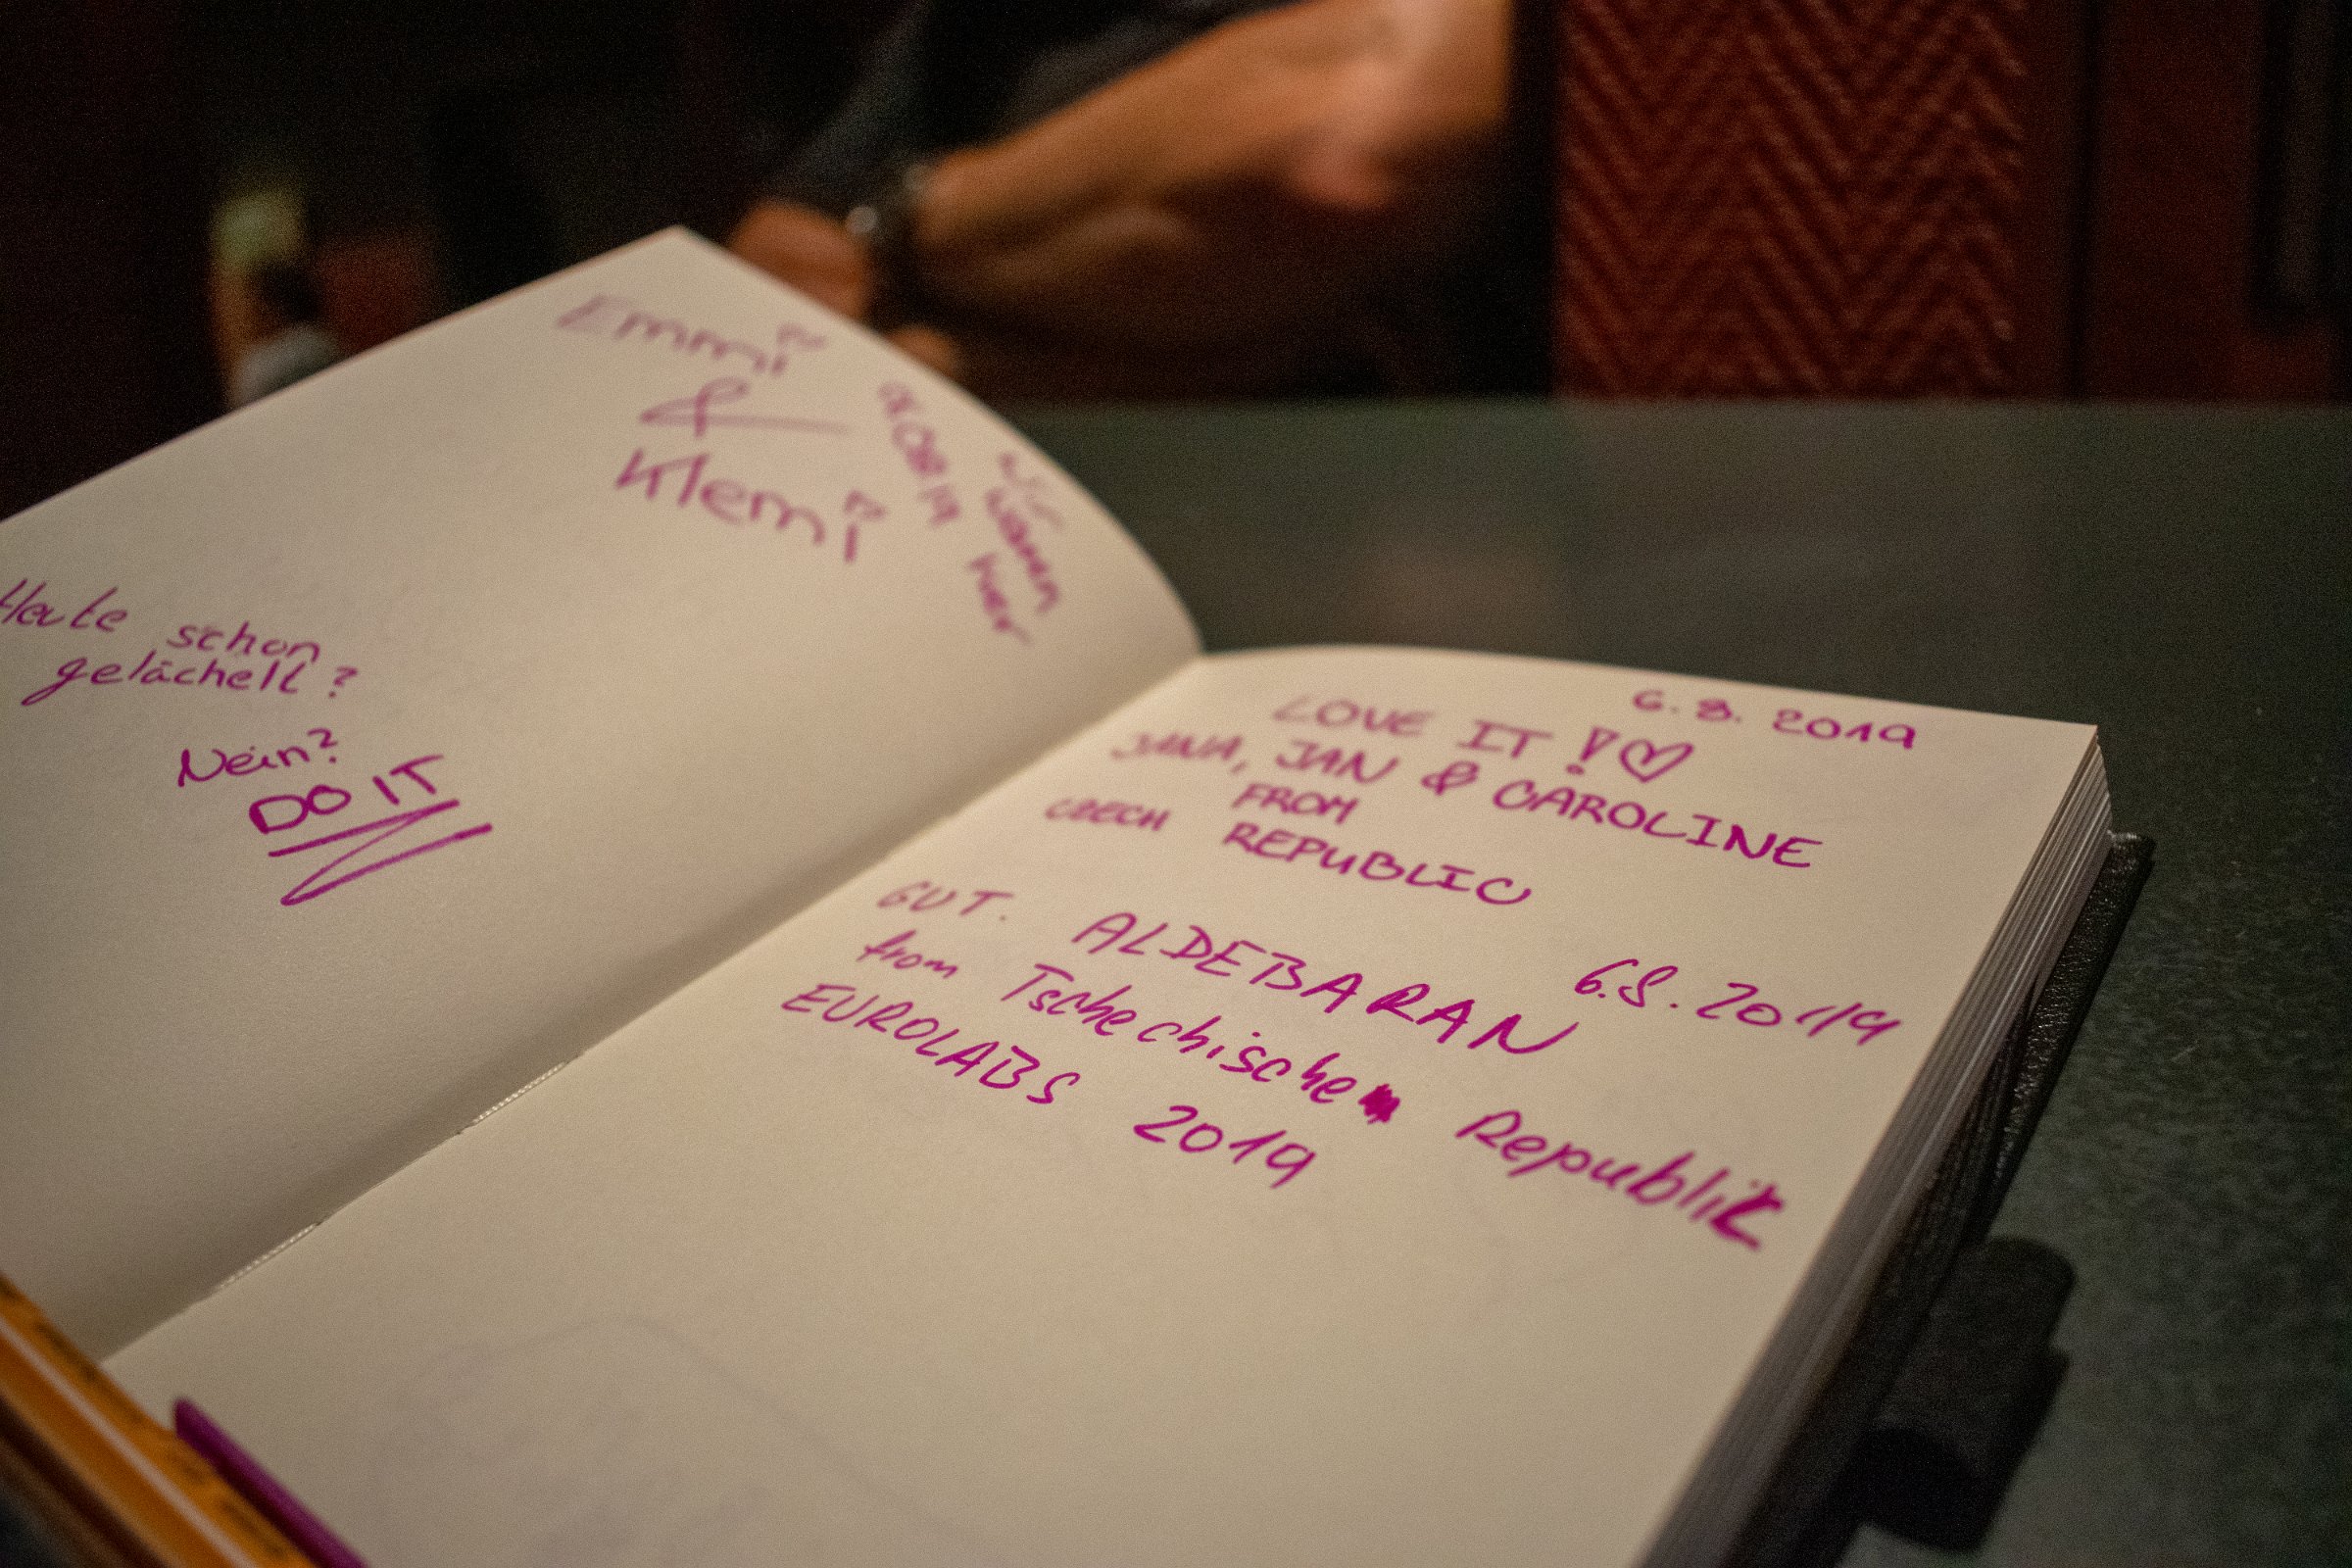 Emmi
&
Klemi
06.08.19
Wir waren hier
Heute schon
gelächelt?
Nein?
DO IT
6.8.2019
LOVE IT!♡
JANA, JAN & CAROLINE
FROM
CZECH REPUBLIC
6.8.2019
GUT. ALDEBARAN
from Tschechische Republik
EUROLABS 2019